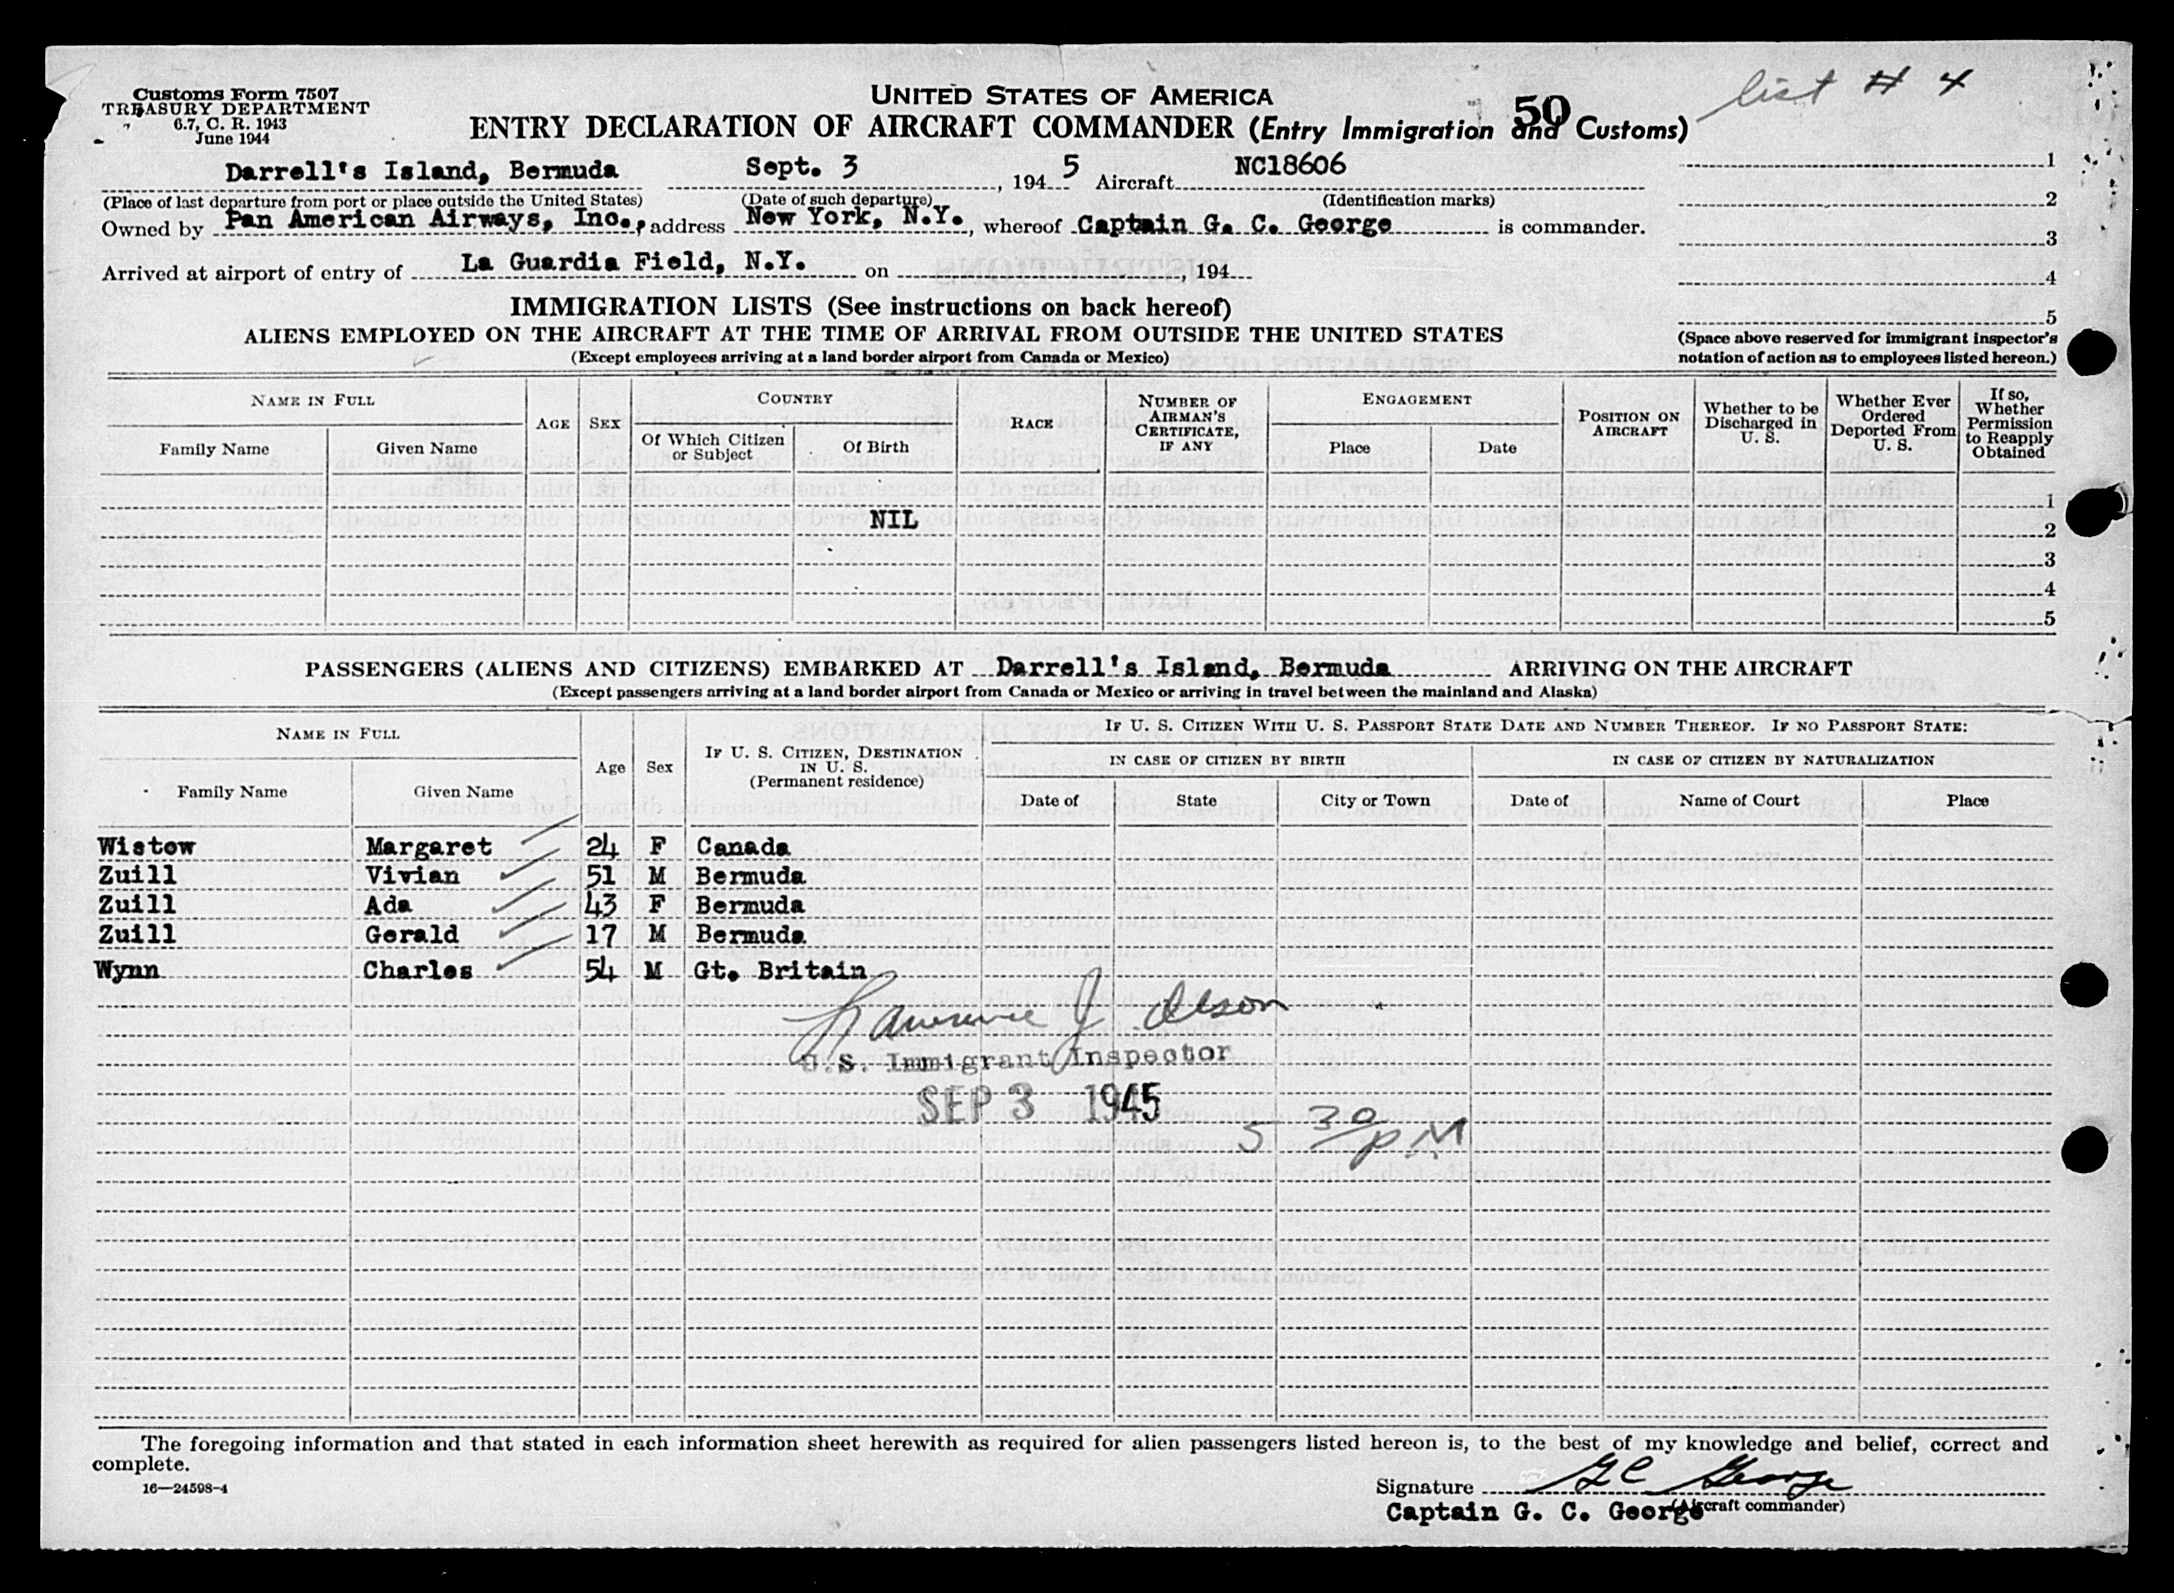 Customs Form 7507
TREASURY DEPARTMENT
6.7, C. R. 1943
June 1944
UNITED STATES OF AMERICA
ENTRY DECLARATION OF AIRCRAFT COMMANDER (Entry Immigration and Customs)
50
list # 4
Darrell's Island, Bermuda Sept. 3, 1945 Aircraft NC18606
(Place of last departure from port or place outside the United States) (Date of such departure) (Identification marks)
Owned by Pan American Airways, Inc., address New York, N.Y., whereof Captain G. C. George is commander.
Arrived at airport of entry of La Guardia Field, N.Y. on , 194
1
2
3
4
5
(Space above reserved for immigrant inspector's
notation of action as to employees listed hereon.)
IMMIGRATION LISTS (See instructions on back hereof)
ALIENS EMPLOYED ON THE AIRCRAFT AT THE TIME OF ARRIVAL FROM OUTSIDE THE UNITED STATES
(Except employees arriving at a land border airport from Canada or Mexico)
NAME IN FULL
Family Name Given Name
AGE
SEX
COUNTRY
Of Which Citizen or Subject
Of Birth
RACE
NUMBER OF AIRMAN'S CERTIFICATE, IF ANY
ENGAGEMENT
Place Date
POSITION ON AIRCRAFT
Whether to be Discharged in U. S.
Whether Ever Ordered Deported From U. S.
If so, Whether Permission to Reapply Obtained
1
NIL 2
3
4
5
PASSENGERS (ALIENS AND CITIZENS) EMBARKED AT Darrell's Island, Bermuda ARRIVING ON THE AIRCRAFT
(Except passengers arriving at a land border airport from Canada or Mexico or arriving in travel between the mainland and Alaska)
NAME IN FULL
Family Name Given Name
Age
Sex
IF U. S. CITIZEN, DESTINATION IN U. S.
(Permanent residence)
IF U. S. CITIZEN WITH U. S. PASSPORT STATE DATE AND NUMBER THEREOF. IF NO PASSPORT STATE:
IN CASE OF CITIZEN BY BIRTH IN CASE OF CITIZEN BY NATURALIZATION
Date of State City or Town Date of Name of Court Place
Wistow Margaret 24 F Canada
Zuill Vivian 51 M Bermuda
Zuill Ada 43 F Bermuda
Zuill Gerald 17 M Bermuda
Wynn Charles 54 M Gt. Britain
Lawrence J Olson
U.S. Immigrant Inspector
SEP 3 1945
5 30 PM
The foregoing information and that stated in each information sheet herewith as required for alien passengers listed hereon is, to the best of my knowledge and belief, correct and
complete.
16—24598-4
Signature G C George
(Aircraft commander)
Captain G. C. George